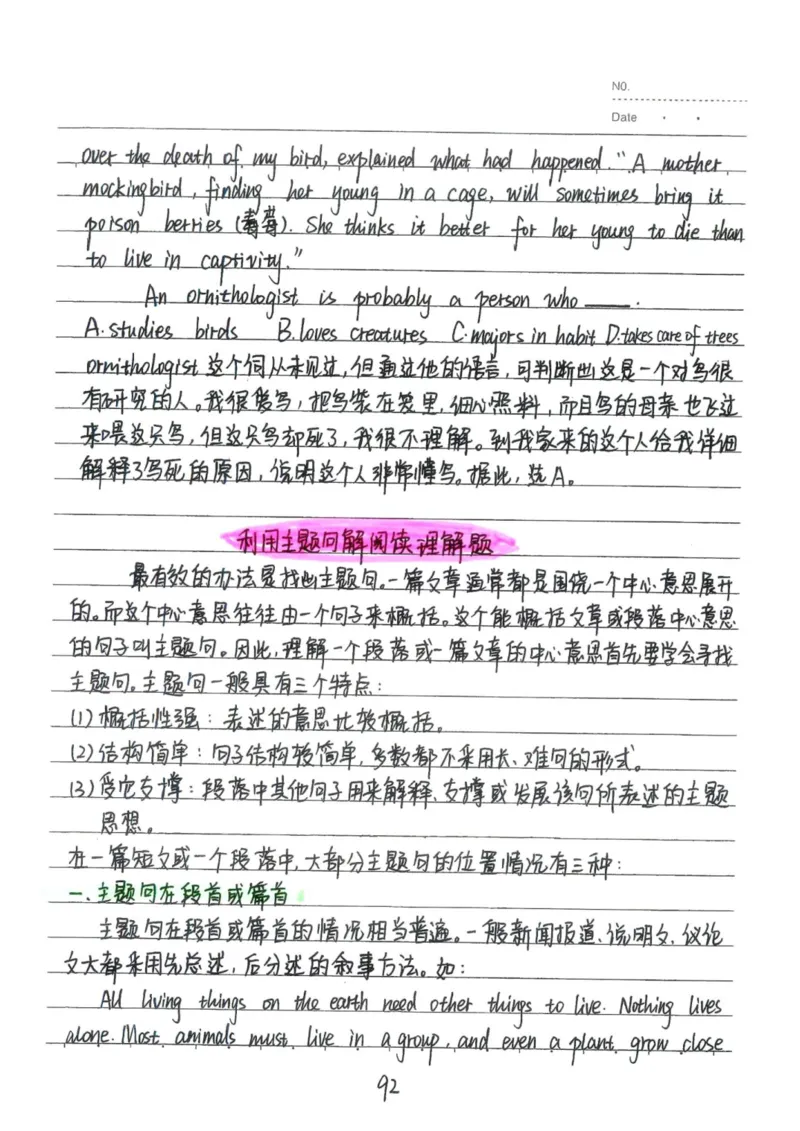 NO.
Date
over the death of my bird, explained what had happened. "A mother
mockingbird, finding her young in a cage, will sometimes bring it
poison berries (莓莓). She thinks it better for her young to die than
to live in captivity."
An ornithologist is probably a person who ____.
A. studies birds B. loves creatures C. majors in habit D. takes care of trees
ornithologist 这个词从未见过,但通过他的语言,可判断出这是一个对鸟很
有研究的人。我很爱鸟,把鸟装在笼里,细心照料,而且鸟的母亲也飞过
来喂这只鸟,但这只鸟却死了,我很不理解。到我家来的这个人给我详细
解释了鸟死的原因,说明这个人非常懂鸟。据此,选A。
利用主题句解阅读理解题
最有效的办法是找出主题句。一篇文章通常都是围绕一个中心意思展开
的。而这个中心意思往往由一个句子来概括。这个能概括文章或段落中心意思
的句子叫主题句。因此,理解一个段落或一篇文章的中心意思首先要学会寻找
主题句。主题句一般具有三个特点:
(1) 概括性强:表述的意思比较概括。
(2) 结构简单:句子结构较简单,多数都不采用长、难句的形式。
(3) 受它支撑:段落中其他句子用来解释、支撑或发展该句所表述的主题
思想。
在一篇短文或一个段落中,大部分主题句的位置情况有三种:
一、主题句在段首或篇首
主题句在段首或篇首的情况相当普遍。一般新闻报道、说明文、议论
文大都采用先总述,后分述的叙事方法。如:
All living things on the earth need other things to live. Nothing lives
alone. Most animals must live in a group, and even a plant grow close
92